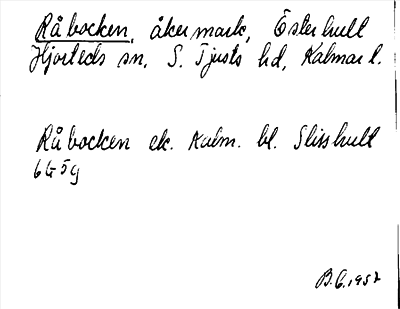 Råbocken, åkermark, Österhult
Hjorteds sn, S. Tjusts hd, Kalmar l.
Råbocken ek. Kalm. bl. Slisshult
6G5g
B.G. 1957